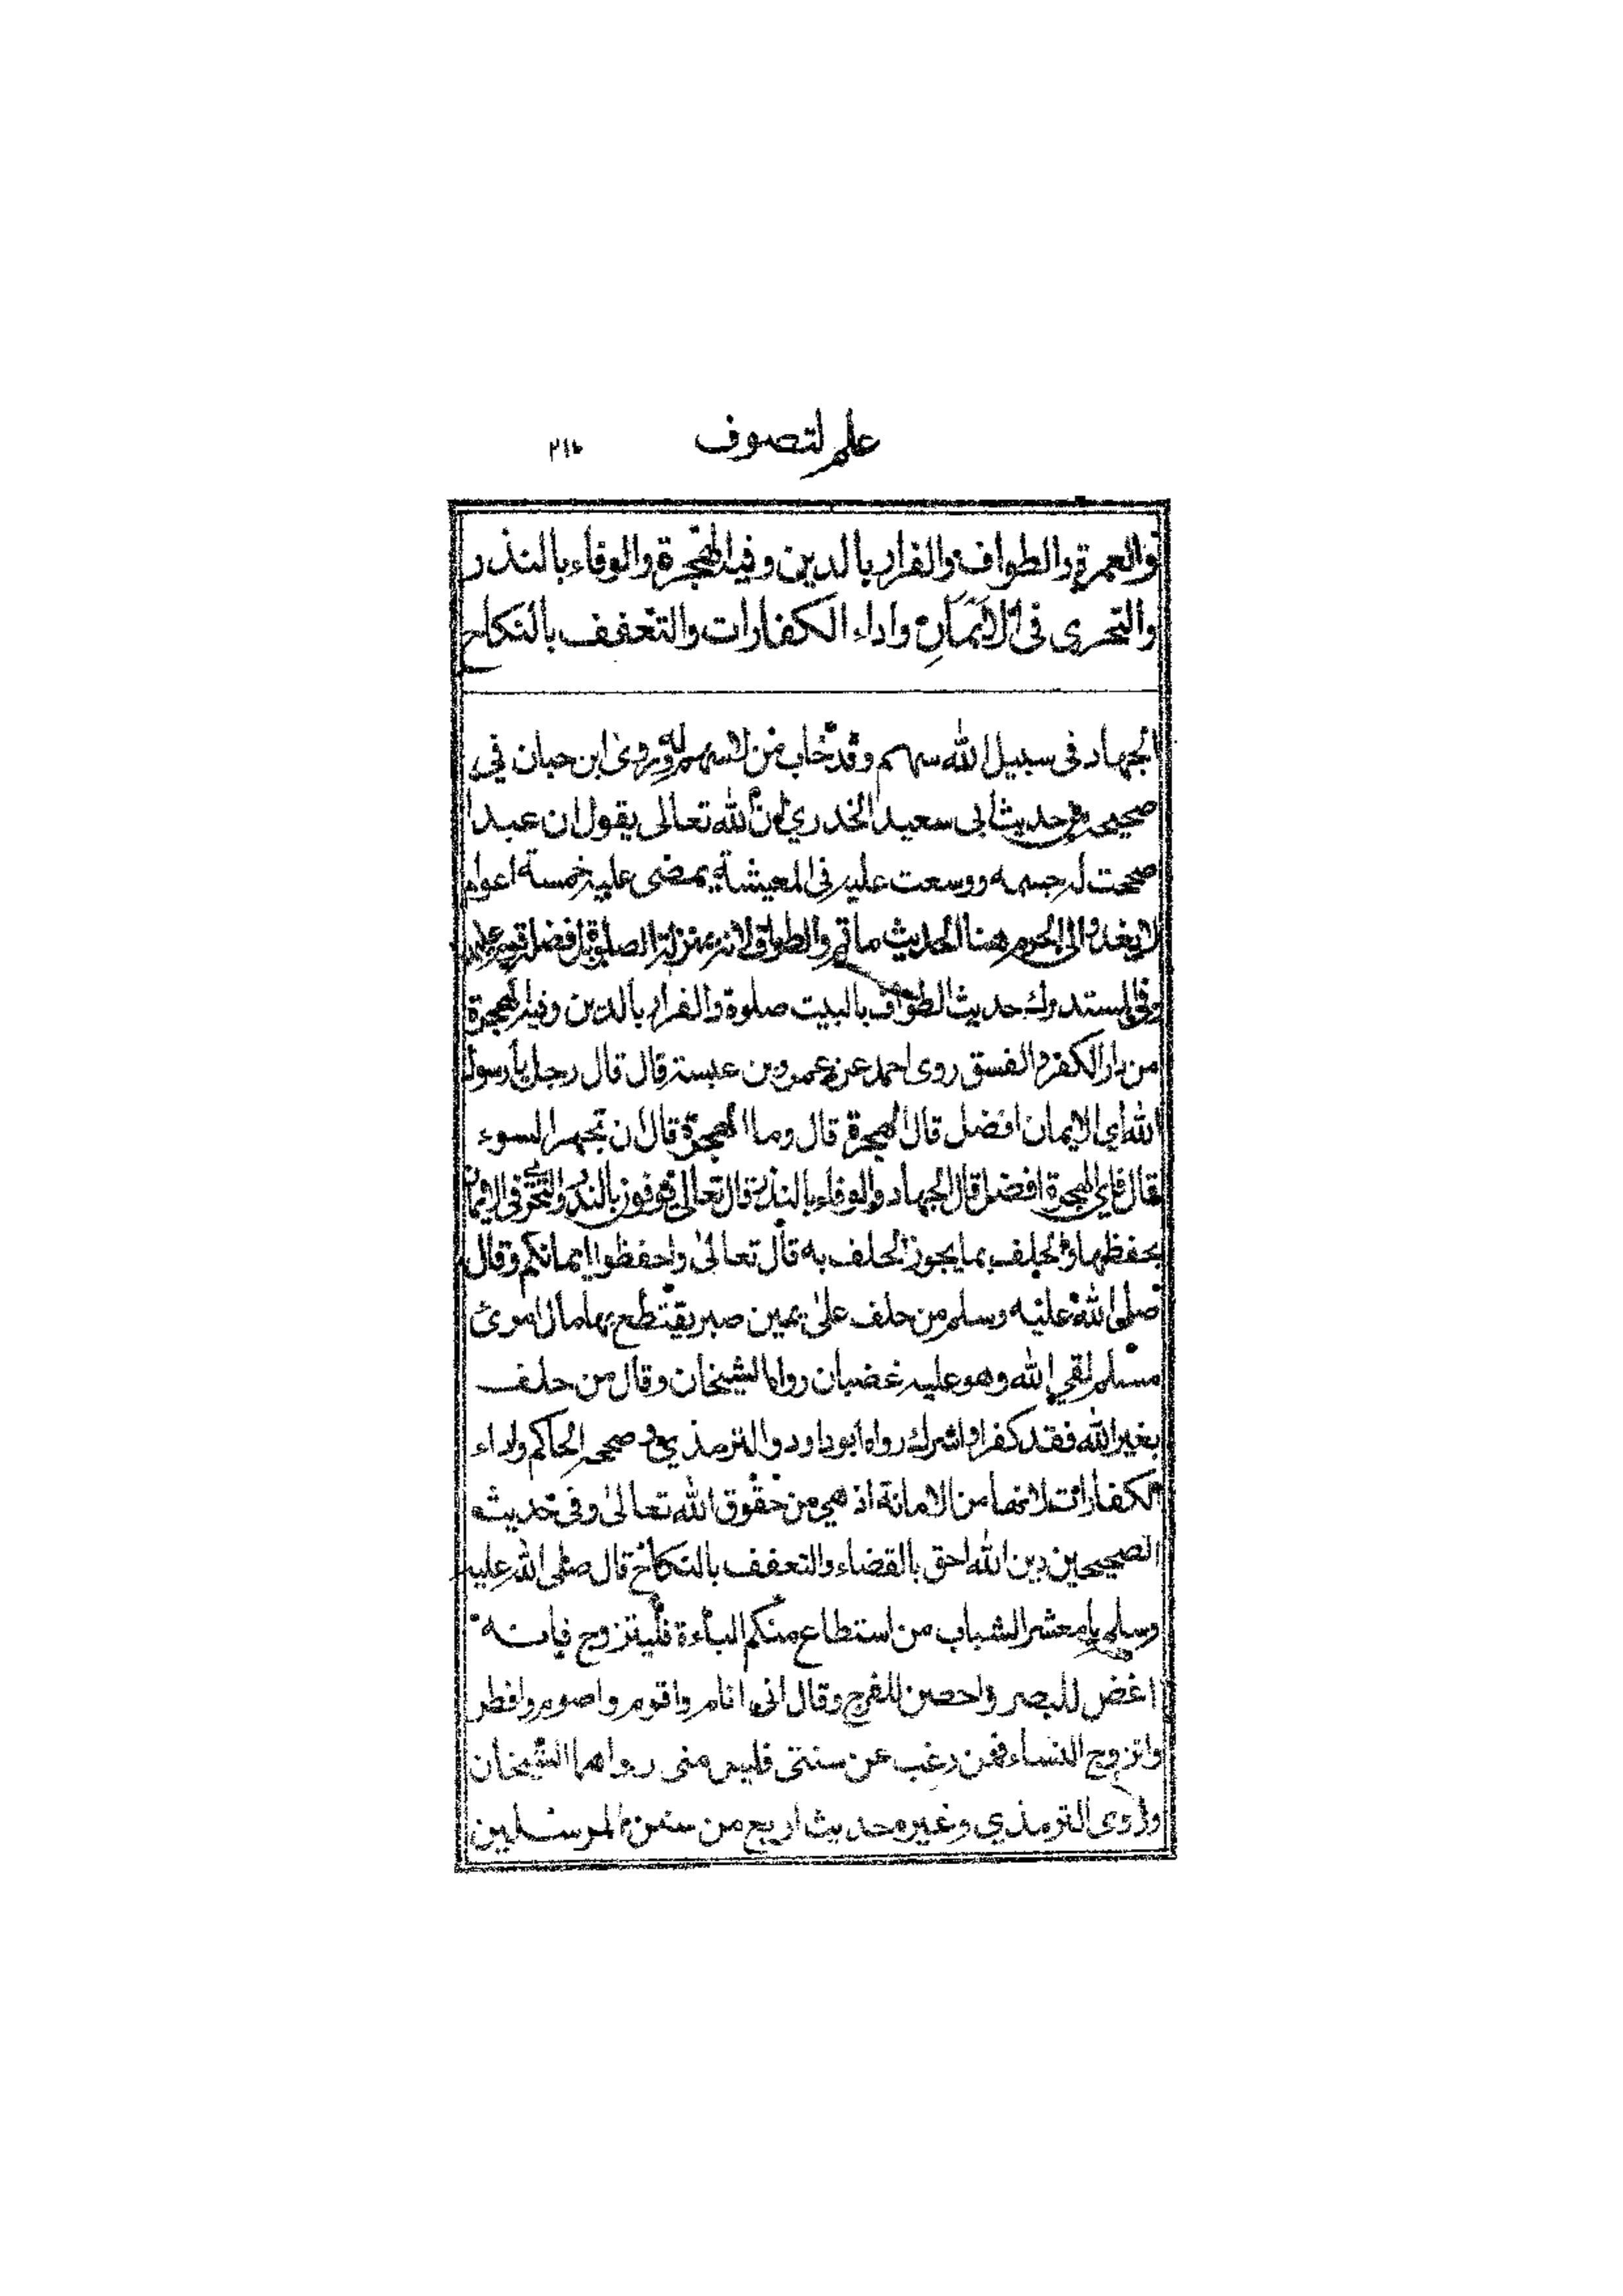 علم التصوف
والعمرة والطواف والفرار بالدين وفيه الهجرة والوفاء بالنذر
والتحرى فى الايمان واداء الكفارات والتعفف بالنكاح
الجهاد فى سبيل الله سهم وقد خاب من لا سهم له وروى ابن حبان في
صحيحه حديث ابى سعيد الخدري ان الله تعالى يقول ان عبدا
صححت له جسمه ووسعت عليه فى المعيشة يمضى عليه خمسة اعوام
لا يغدو الى الحرم هنا الحديث والطواف لانه بمنزلة الصلوة
وفى المستدرك حديث الطواف بالبيت صلوة والفرار بالدين وفيه الهجرة
من دار الكفر والفسق روى احمد عن عمرو بن عبسة قال قال رجل يا رسول
الله اي الايمان افضل قال الهجرة قال وما الهجرة قال ان تهجر السوء
قال فاي الهجرة افضل قال الجهاد والوفاء بالنذر قال تعالى يوفون بالنذر والتحرى فى الايمان
بحفظها والحلف بما يجوز الحلف به قال تعالى واحفظوا ايمانكم وقال
صلى الله عليه وسلم من حلف على يمين صبر يقتطع بها مال امرئ
مسلم لقي الله وهو عليه غضبان رواه الشيخان وقال من حلف
بغير الله فقد كفر او اشرك رواه ابو داود والترمذي وصححه الحاكم واداء
الكفارات لانها من الامانة اذ هي من حقوق الله تعالى وفى حديث
الصحيحين دين الله احق بالقضاء والتعفف بالنكاح قال صلى الله عليه
وسلم يا معشر الشباب من استطاع منكم الباءة فليتزوج فانه
اغض للبصر واحصن للفرج وقال انى انام واقوم واصوم وافطر
واتزوج النساء فمن رغب عن سنتى فليس منى رواهما الشيخان
وروى الترمذي وغيره حديث اربع من سنن المرسلين